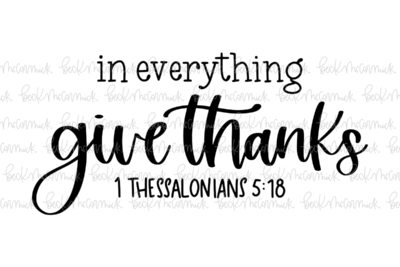 in everything
give thanks
1 THESSALONIANS 5:18